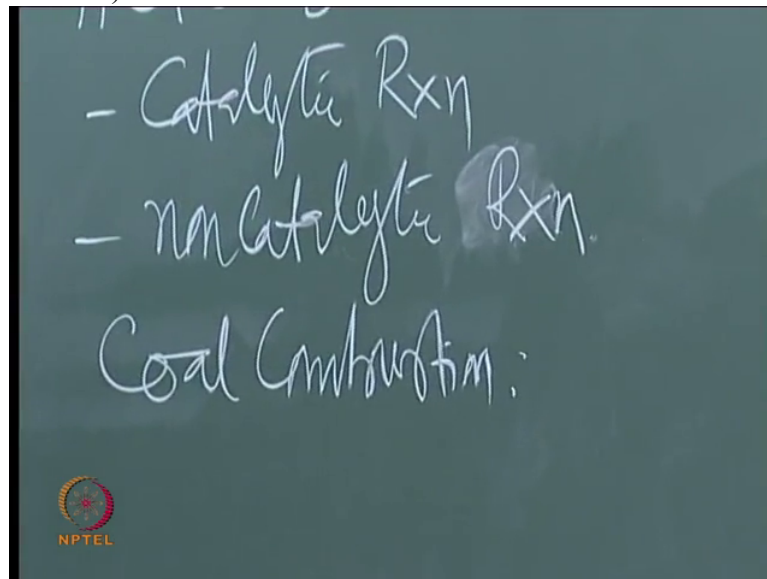 - Catalytic Rxn
- non Catalytic Rxn.
Coal Combustion:
NPTEL